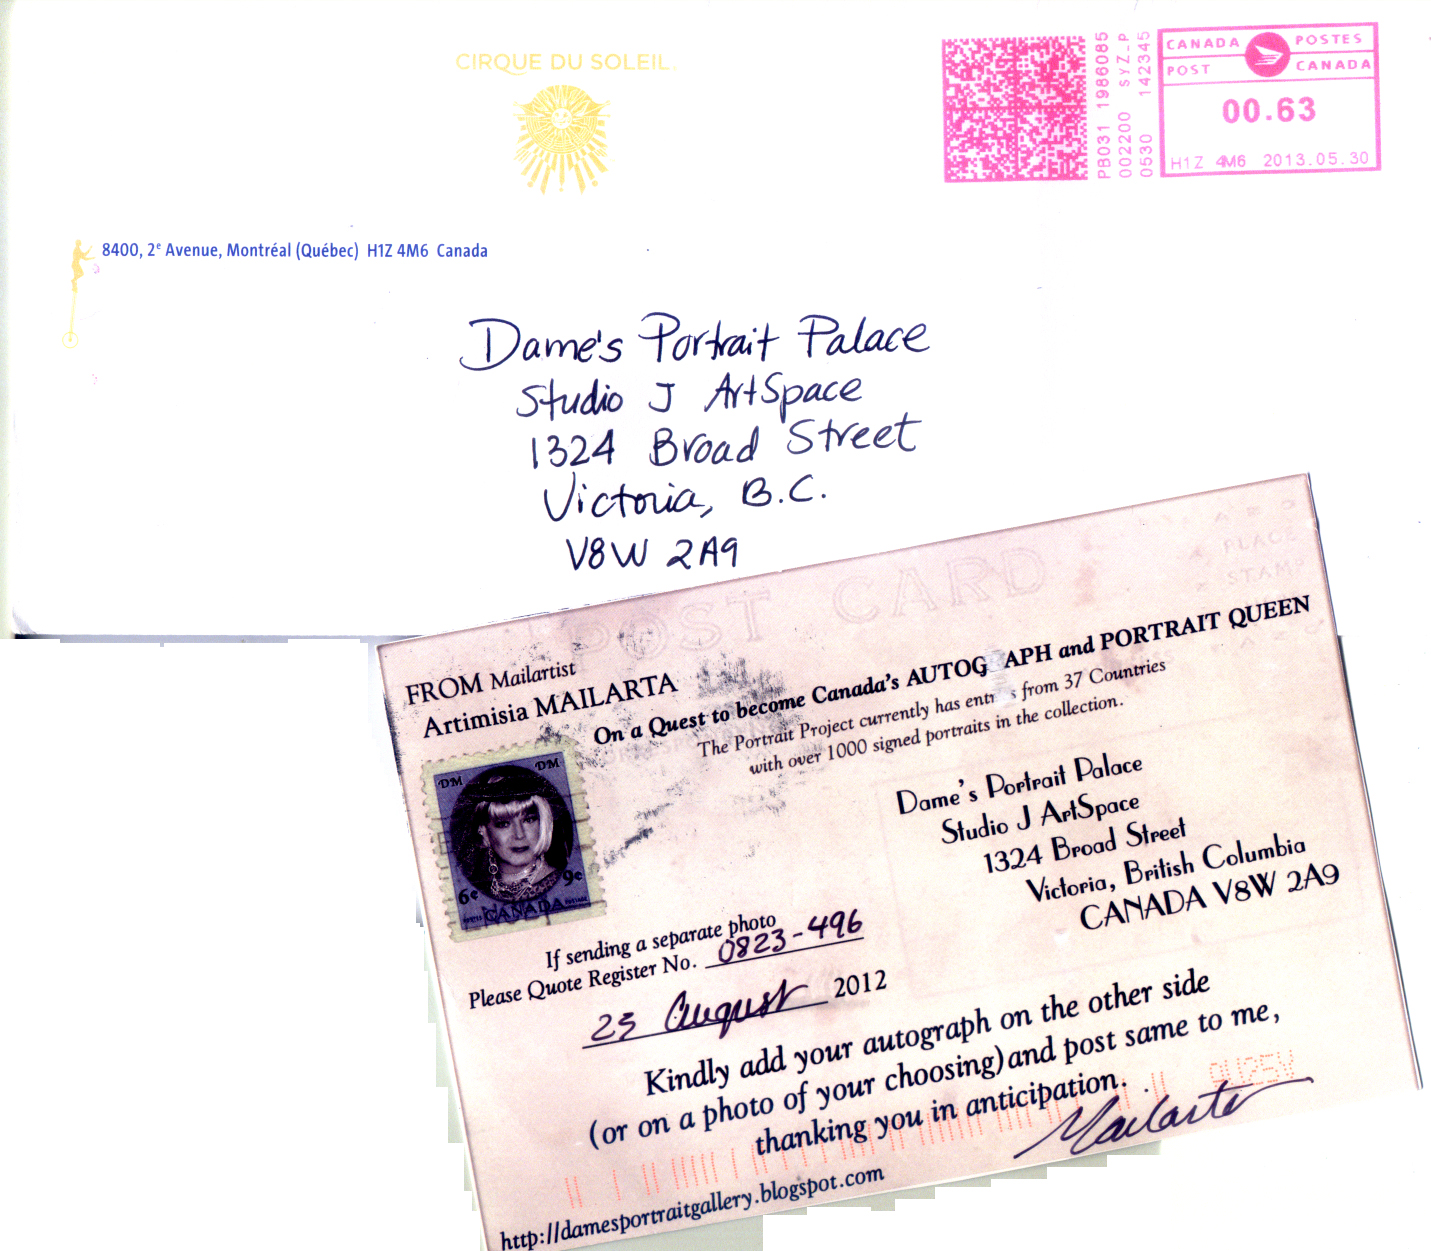 CIRQUE DU SOLEIL
CANADA POSTES
POST CANADA
00.63
H1Z 4M6 2013.05.30
PB031 1986085
002200 SYZ_P
0530 142345
8400, 2e Avenue, Montréal (Québec) H1Z 4M6 Canada
Dame's Portrait Palace
Studio J ArtSpace
1324 Broad Street
Victoria, B.C.
V8W 2A9
POST CARD
PLACE
STAMP
FROM Mailartist
Artimisia MAILARTA
On a Quest to become Canada's AUTOG APH and PORTRAIT QUEEN
The Portrait Project currently has entr s from 37 Countries
with over 1000 signed portraits in the collection.
DM DM
6¢ 9¢
CANADA
Dame's Portrait Palace
Studio J ArtSpace
1324 Broad Street
Victoria, British Columbia
CANADA V8W 2A9
If sending a separate photo
Please Quote Register No. 0823-496
23 August 2012
Kindly add your autograph on the other side
(or on a photo of your choosing) and post same to me,
thanking you in anticipation.
Mailarta
http://damesportraitgallery.blogspot.com